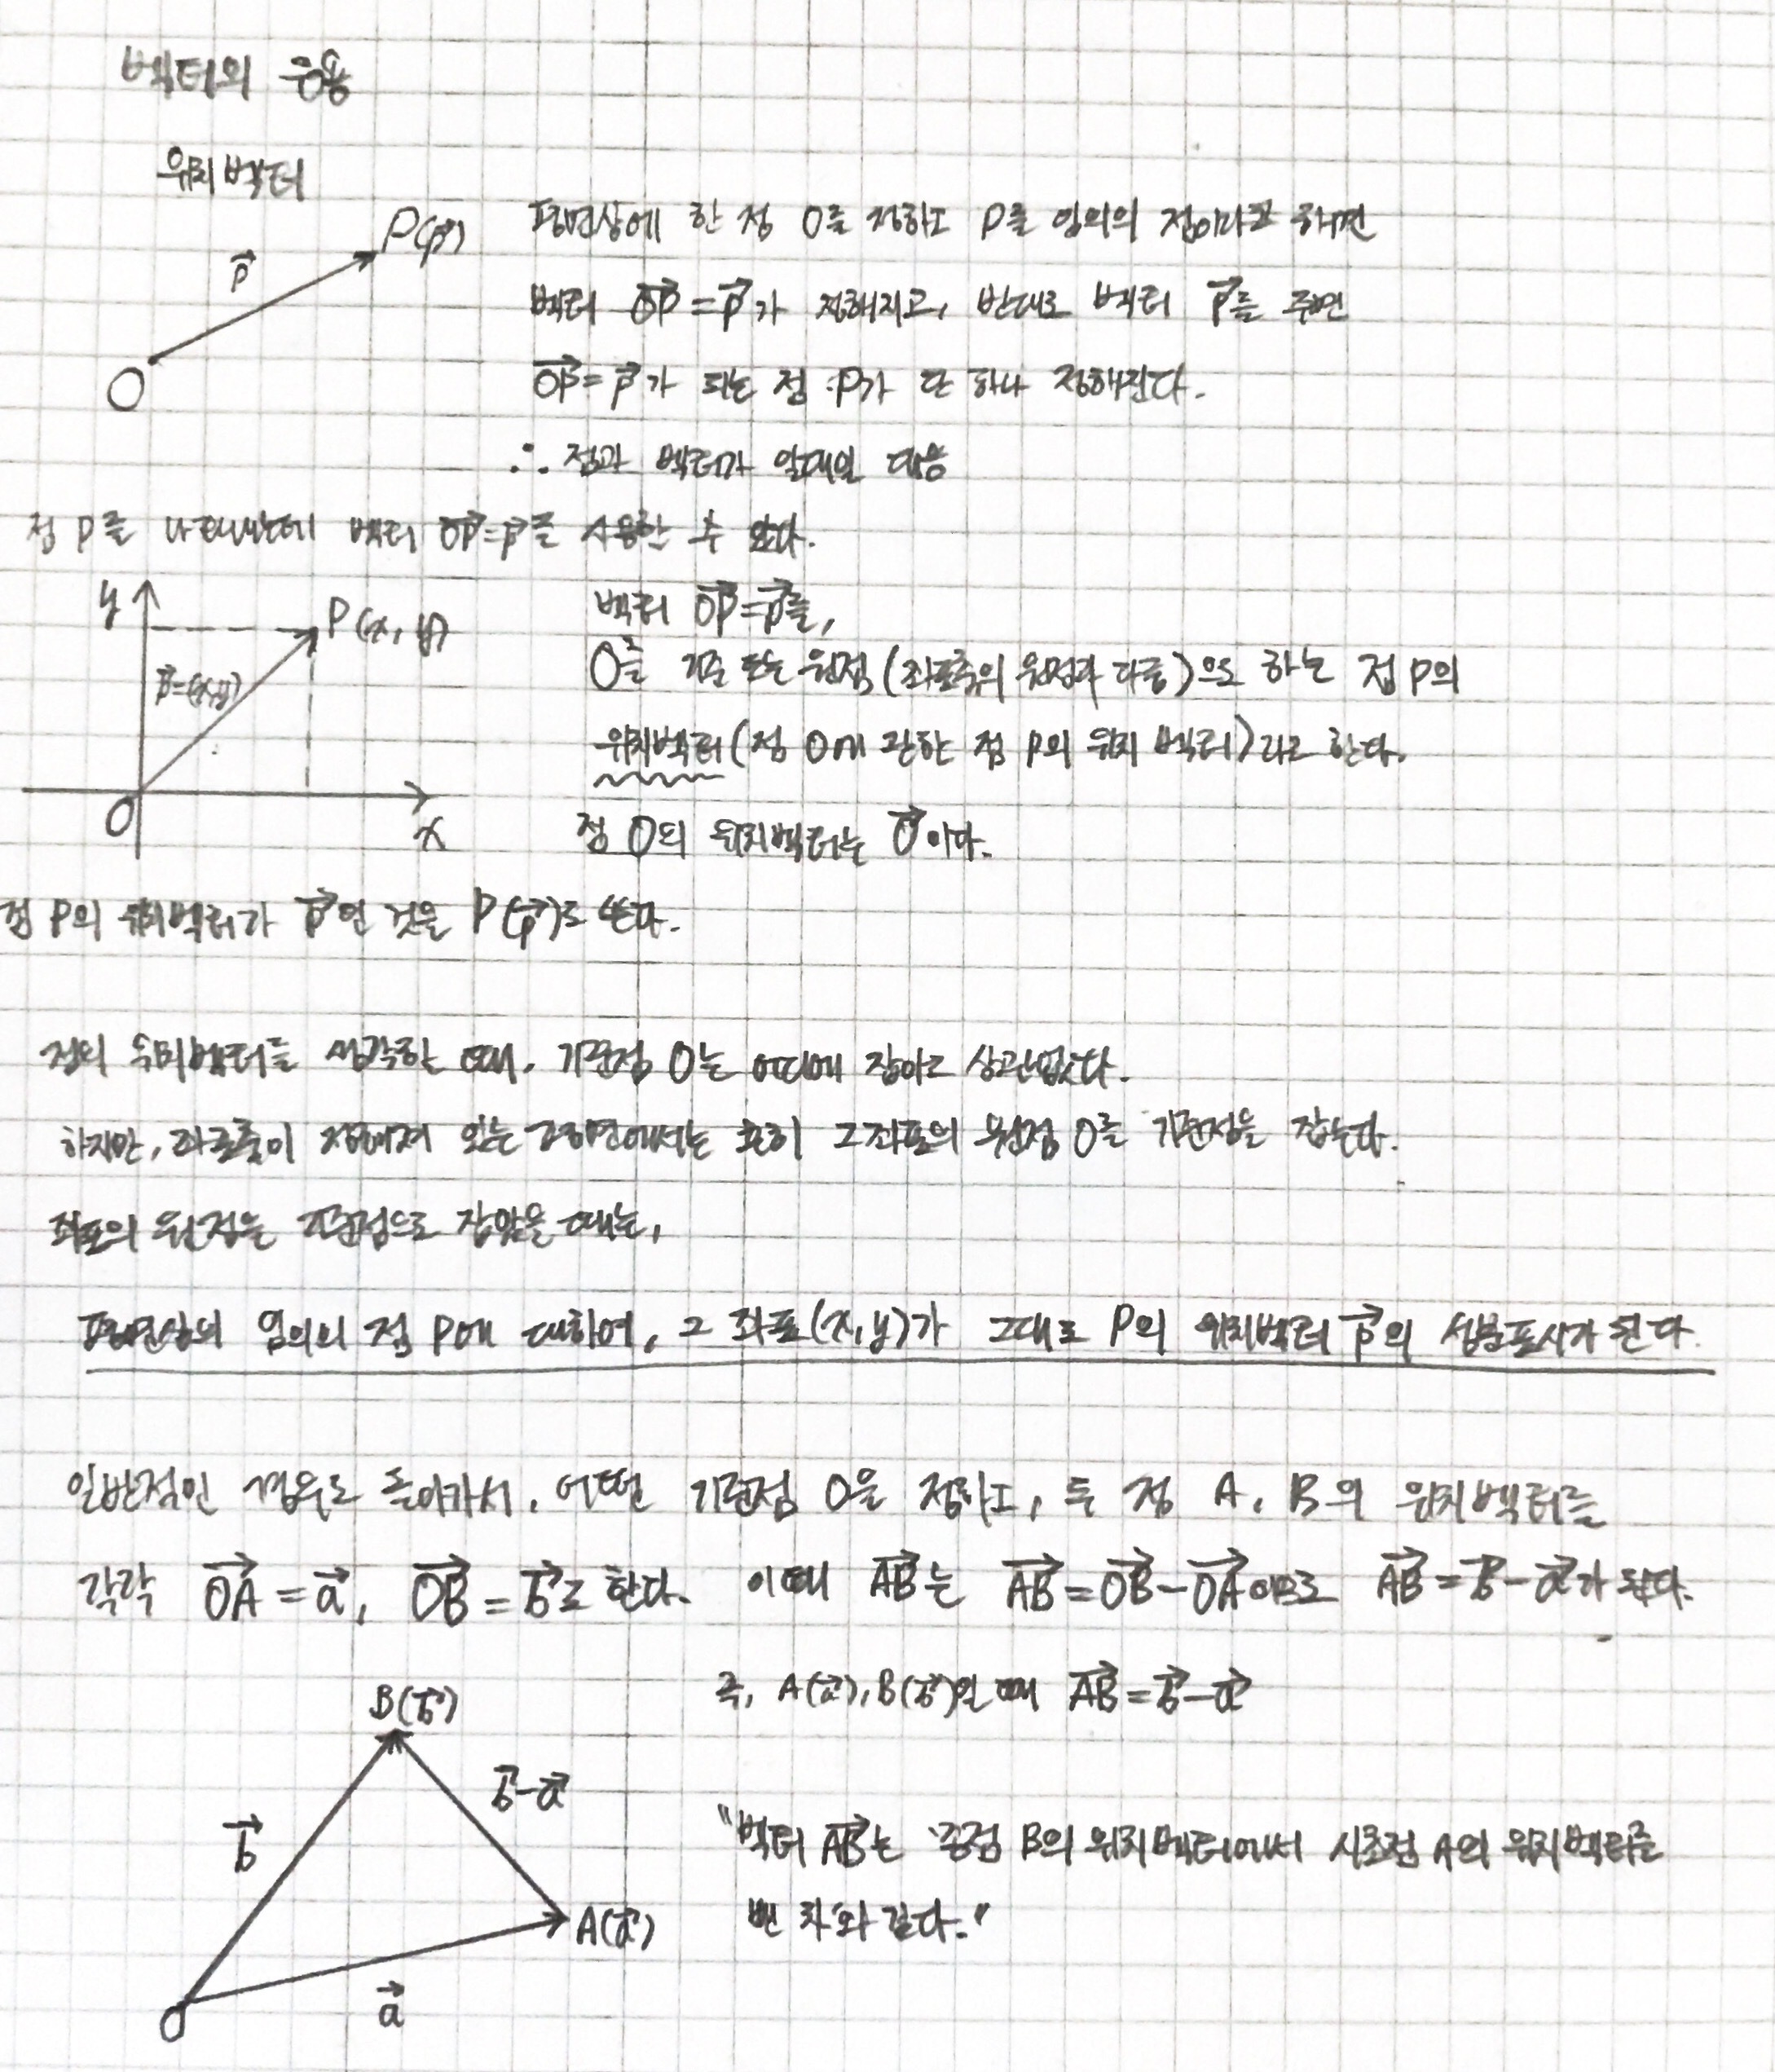 벡터의 응용
위치 벡터
P(p⃗)
p⃗
O
평면상에 한 점 O를 정하고 P를 임의의 점이라고 하면
벡터 OP⃗ = p⃗가 정해지고, 반대로 벡터 p⃗를 주면
OP⃗ = p⃗가 되는 점 P가 단 하나 정해진다.
∴ 점과 벡터가 일대일 대응
점 P를 나타내는데 벡터 OP⃗ = p⃗를 사용할 수 있다.
y
P(x, y)
p⃗=(x,y)
O
x
벡터 OP⃗ = p⃗를,
O를 기준 또는 원점 (좌표축의 원점과 다름)으로 하는 점 P의
위치벡터 (점 O에 관한 점 P의 위치 벡터)라고 한다.
점 O의 위치벡터는 0⃗이다.
점 P의 위치벡터가 p⃗인 것을 P(p⃗)로 쓴다.
점의 위치벡터를 생각할 때, 기준점 O는 어디에 잡아도 상관없다.
하지만, 좌표축이 정해져 있는 평면에서는 흔히 그 좌표의 원점 O를 기준점을 잡는다.
좌표의 원점을 기준점으로 잡았을 때는,
평면상의 임의의 점 P에 대하여, 그 좌표(x, y)가 그대로 P의 위치벡터 p⃗의 성분표시가 된다.
일반적인 경우로 돌아가서, 어떤 기준점 O을 정하고, 두 점 A, B의 위치벡터를
각각 OA⃗ = a⃗, OB⃗ = b⃗로 한다. 이때 AB⃗는 AB⃗ = OB⃗ - OA⃗이므로 AB⃗ = b⃗ - a⃗가 된다.
즉, A(a⃗), B(b⃗)일 때 AB⃗ = b⃗ - a⃗
B(b⃗)
b⃗ - a⃗
b⃗
A(a⃗)
a⃗
O
"벡터 AB⃗는 종점 B의 위치벡터에서 시초점 A의 위치벡터를
뺀 차와 같다."